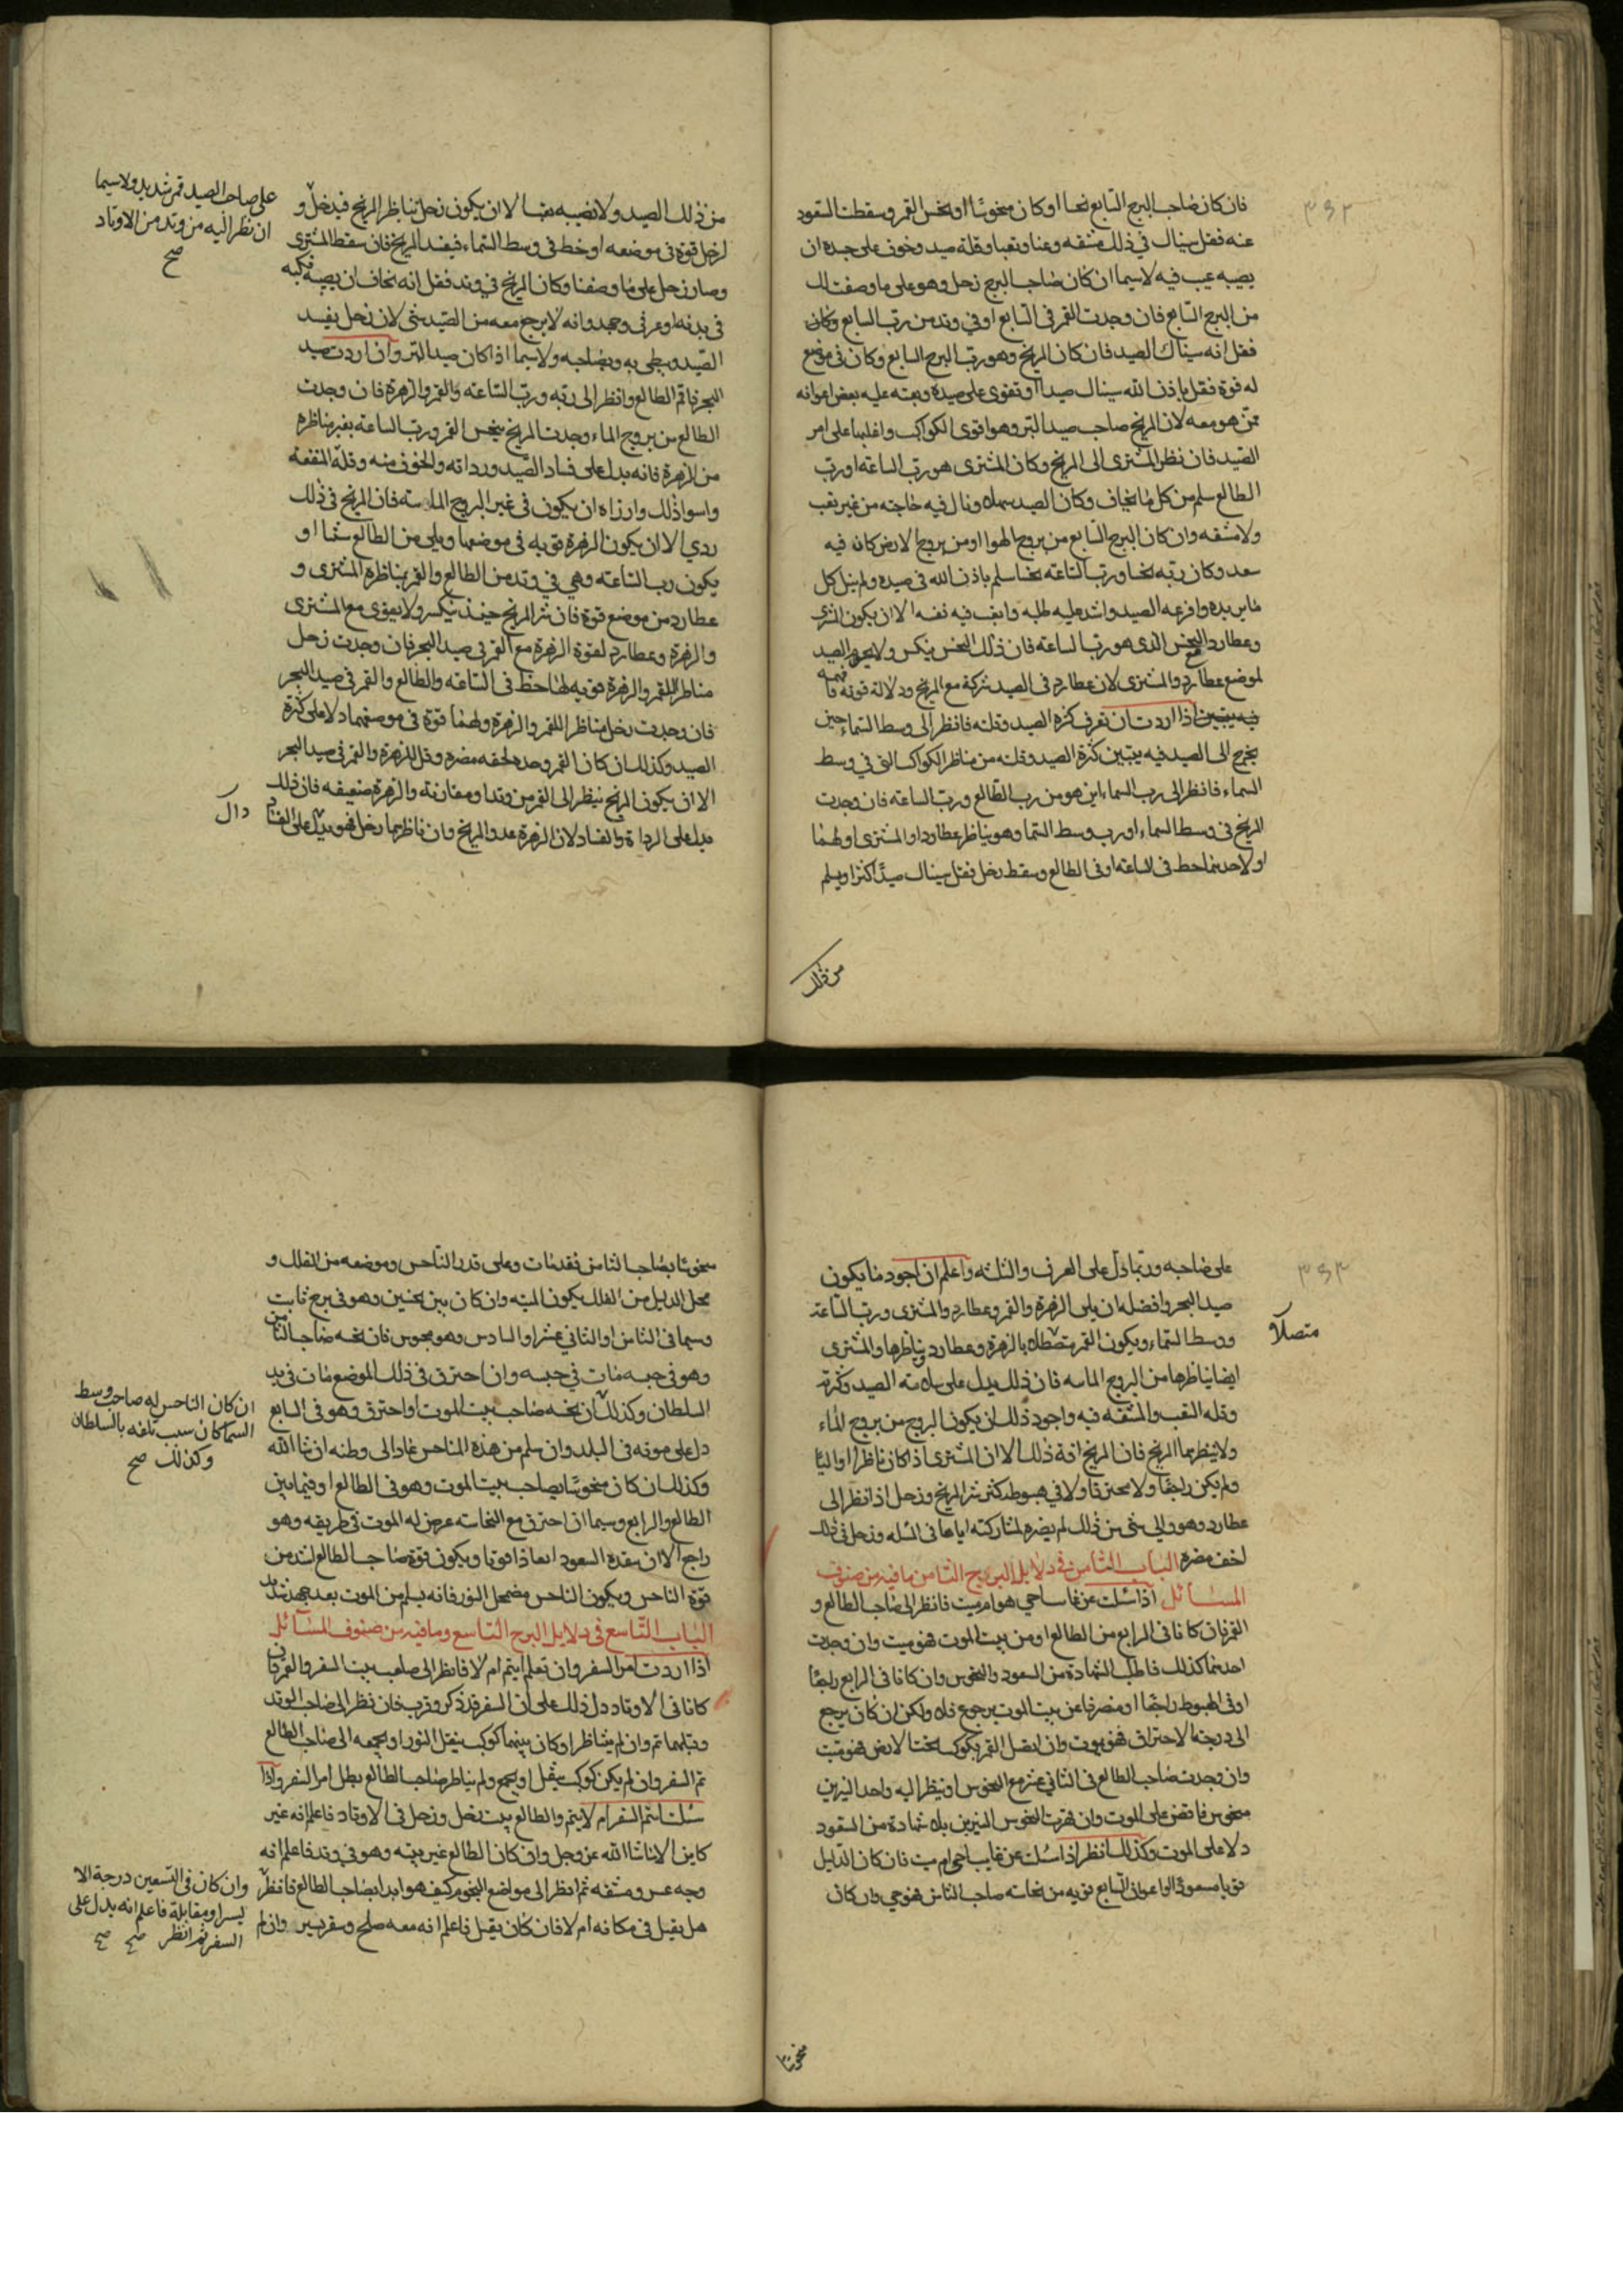 ٣٤٢
فان كان صاحب البرج السابع نحسا او كان منحوسا او نحس القمر وسقطت السعود
عنه فقل سينال في ذلك مشقه وعنا وتعبا وقلة صيد وخوف على جسده ان
يصيبه عيب فيه لاسيما ان كان صاحب البرج زحل وهو على ما وصفت لك
من البرج السابع فان وجدت القمر في السابع او في وتد من رب السابع وكان
فقل انه سينال الصيد فان كان المريخ وهو رب البرج السابع وكان في موضع
له قوة فقل باذن الله سينال صيدا وتقوى على صيده ويعينه عليه بعض اعوانه
ممن هو معه لان المريخ صاحب صيد البر وهو اقوى الكواكب واغلبها على امر
الصيد فان نظر المشترى الى المريخ وكان المشترى هو رب الساعة او رب
الطالع سلم من كل ما يخاف وكان الصيد سهلا ونال فيه حاجته من غير تعب
ولا مشقه وان كان البرج السابع من بروج الهوا او من بروج الارض كان فيه
سعد وكان ربه نحسا ورب الساعه نحسا سلم باذن الله في صيده ولم ينل كل
ما يريده وافزعه الصيد واشتد عليه طلبه واتعب فيه نفسه الا ان يكون المشترى
وعطارد النحس الذى هو رب الساعه فان ذلك النحس ينكسر ولا يحرم الصيد
لموضع عطارد والمشترى لان عطارد في الصيد شركة مع المريخ ودلالة قوية فافهمه
فيه يتبين اذا اردت ان تعرف كثرة الصيد وقلته فانظر الى وسط السماء حين
يخرج الى الصيد فيه يتبين كثرة الصيد وقلته من مناظر الكواكب التى في وسط
السماء فانظر الى رب السماء اين هو من رب الطالع ورب الساعه فان وجدت
المريخ في وسط السماء او رب وسط السما وهو يناظر عطارد او المشترى او لهما
او لاحدهما حظ في الساعه او في الطالع وسقط زحل فقل سينال صيدا كثيرا ويسلم
من ذلك
من ذلك الصيد ولا يصيبه تعبا الا ان يكون زحل يناظر المريخ فيدخل و
لزحل قوة في موضعه او حظ في وسط السماء فيفسد المريخ فان سقط المشترى
وصار زحل على ما وصفنا وكان المريخ في وتد فقل انه يخاف ان يصيبه نكبه
في بدنه او عرقي وجهد وانه لا يرجع معه من الصيد شي لان زحل يفسد
الصيد ويبطى به وبصاحبه ولا سيما اذا كان صيد البر وان اردت صيد
البحر فاقم الطالع وانظر الى ربه ورب الساعه والقمر والزهرة فان وجدت
الطالع من بروج الماء وجدت المريخ ينحس القمر ورب الساعة بغير مناظره
من الزهرة فانه يدل على فساد الصيد ورداته والخوف منه وقلة المنفعة
واسوا ذلك وارزاه ان يكون في غير البروج المائيه فان المريخ في ذلك
ردي الا ان يكون الزهرة قويه في موضعها ويلى من الطالع شيا او
يكون رب الساعه وهي في وتد من الطالع والقمر يناظره المشترى و
عطارد من موضع قوة فان شر المريخ حينئذ ينكسر ولا يقوى مع المشترى
والزهرة وعطارد لقوة الزهرة مع القمر في صيد البحر فان وجدت زحل
مناظرا للقمر والزهرة قويه لها حظ في الساعه والطالع والقمر في صيد البحر
فان وجدت زحل مناظر اللقمر والزهرة ولهما قوة في موضعهما دلا على كثرة
الصيد وكذلك ان كان القمر وحده لحقه مضره وقل للزهرة والقمر في صيد البحر
الا ان يكون المريخ ينظر الى القمر من وتد او مقارنة والزهرة ضعيفه فان ذلك
يدل على الرداة والفساد لان الزهرة عدو المريخ وان ناظرهما زحل فهو يدل على الفساد
على صاحب الصيد قمر شديد ولاسيما
ان نظر اليه من وتد من الاوتاد
صح
دال
٣٤٣
على صاحبه وربما دل على الغرق والتلف واعلم ان اجود ما يكون
صيد البحر وافضله ان يلى الزهرة والقمر وعطارد والمشترى ورب الساعة
ووسط السماء ويكون القمر متصلا بالزهرة وعطارد يناظرها والمشترى
ايضا يناظرها من البروج المائيه فان ذلك يدل على سلامته الصيد وكثرته
وقلة التعب والمشقه فيه واجود ذلك ان يكون البروج من بروج الماء
ولا ينظر بها المريخ فان المريخ افة ذلك الا ان المشترى اذا كان ناظرا او اليا
ولم يكن راجعا ولا محترقا ولا في هبوطه كسر شر المريخ وزحل اذا نظر الى
عطارد وهو والي شي من ذلك لم يضره لمشاركته اياها في المثله وزحل في ذلك
اخف مضره الباب الثامن في دلايل البرج الثامن وما فيه من صنوف
المسائل اذا سئلت عن غايب احي هو ام ميت فانظر الى صاحب الطالع و
القمر فان كانا في الرابع من الطالع او من بيت الموت فهو ميت وان وجدت
احدهما كذلك فاطلب الشهادة من السعود والنحوس وان كانا في الرابع راجعا
او في الهبوط راجعا او منصرفا عن بيت الموت يرجوع فلا ولكن ان كان يرجع
الى درجة الاحتراق فهو يموت وان اتصل القمر بكوكب تحت الارض فهو ميت
وان وجدت صاحب الطالع في الثاني عشر مع النحوس او ينظر اليه واحد النيرين
منحوس فاقض على الموت وان قهرت النحوس النيرين بلا شهادة من السعود
دلا على الموت وكذلك انظر اذا سئلت عن غايب احي ام ميت فان كان الدليل
قويا مسعودا او اعوان السابع قويه من نحاسته صاحب الثامن فهو حي وان كان
متصلا
منحوسا
منحوسا بصاحب الثامن فقد مات وعلى قدر الناحس وموضعه من الفلك و
محل الدليل من الفلك يكون الميته وان كان بين نحسين وهو في برج ثابت
وسيما في الثامن او الثاني عشر او السادس وهو محبوس فان نحسه صاحب الثامن
وهو في حبسه مات في حبسه وان احترق في ذلك الموضع مات في يد
السلطان وكذلك ان نحسه صاحب بيت الموت او احترق وهو في السابع
دل على موته في البلد وان سلم من هذه المناحس عاد الى وطنه ان شا الله
وكذلك ان كان منحوسا بصاحب بيت الموت وهو في الطالع او فيما بين
الطالع والرابع وسيما ان احترق مع النحاسته عرض له الموت في طريقه وهو
راجع الا ان ينقذه السعود انقاذا قويا ويكون قوة صاحب الطالع اشد من
قوة الناحس ويكون الناحس مضمحل النور فانه يسلم من الموت بعد جهد شديد
الباب التاسع في دلايل البرج التاسع وما فيه من صنوف المسائل
اذا اردت امر السفر وان تعلم ايتم ام لا فانظر الى صاحب بيت السفر والقمر فان
كانا في الاوتاد دل ذلك على ان السفر قد ذكر وقرب فان نظر الى صاحب الوتد
وقبلهما تم وان لم يتناظرا وكان بينهما كوكب ينقل النور او يجمعه الى صاحب الطالع
تم السفر وان لم يكن كوكب ينقل او يجمع ولم يناظر صاحب الطالع بطل امر السفر واذا
سئلت ايتم السفر ام لا يتم والطالع بيت زحل وزحل في الاوتاد فاعلم انه غير
كاين الا ان شا الله عز وجل وان كان الطالع غير بيته وهو في وتد فاعلم انه
وجه عسر ومشقه ثم انظر الى مواضع النجوم كيف هو ابدا بصاحب الطالع فانظر
هل يقبل في مكانه ام لا فان كان يقبل فاعلم انه معه صلح وسفر يسير وان لم
ان كان الناحس له صاحب وسط
السما كان سبب تلفه بالسلطان
وكذلك صح
وان كان في التسعين درجة الا
يسر او مقابلة فاعلم انه يدل على
السفر ثم انظر صح صح